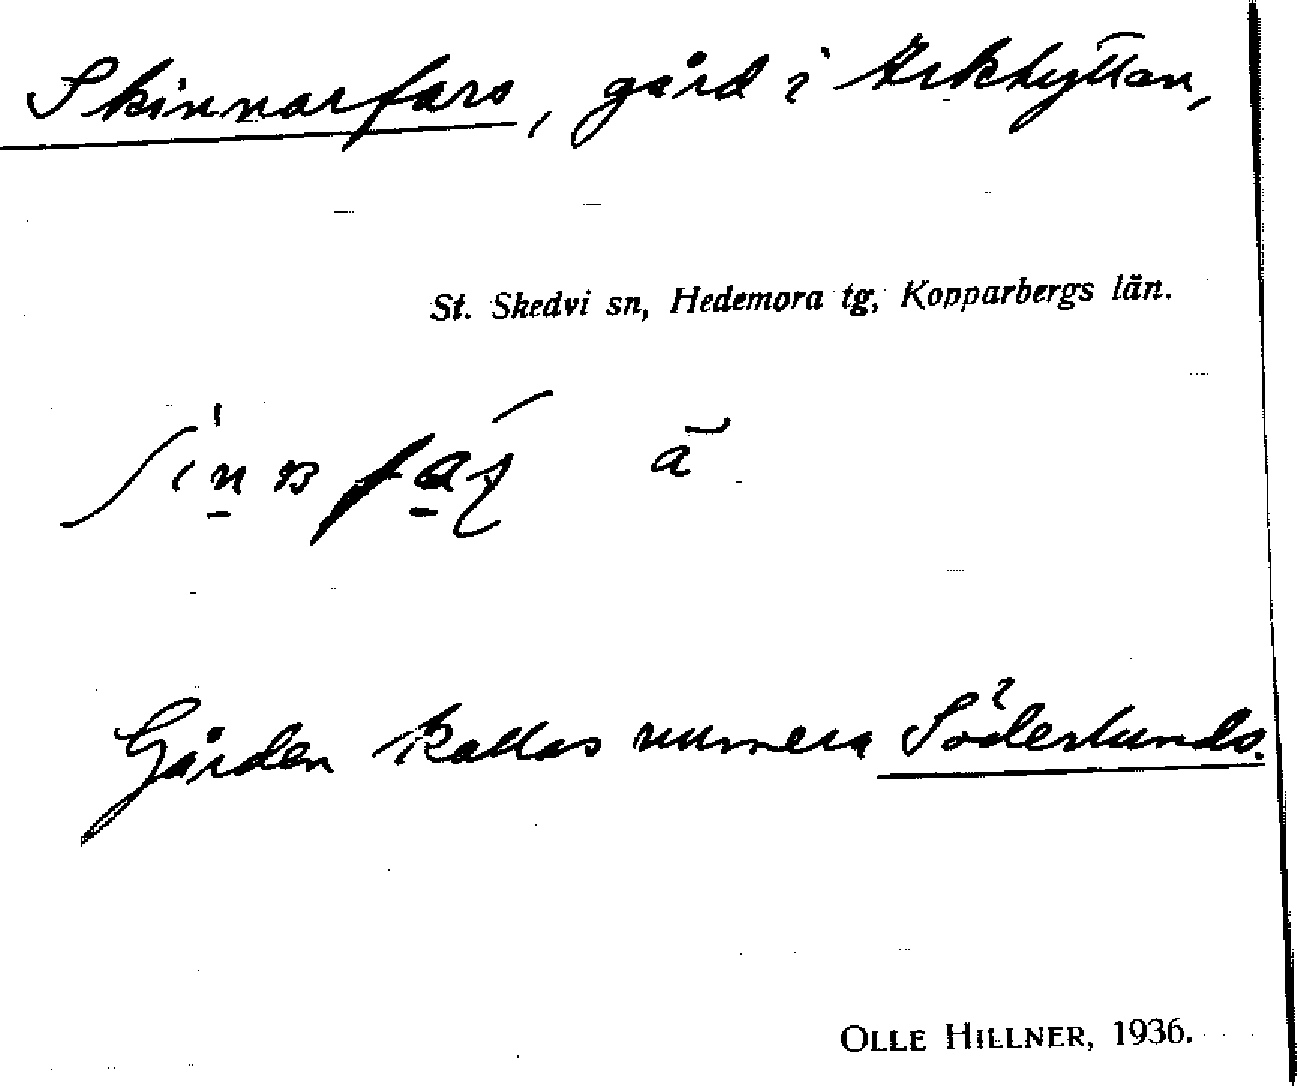 Skinnarfars, gård i Arkhyttan,
St. Skedvi sn, Hedemora tg, Kopparbergs län.
Gården kallas numera Söderlunds.
OLLE HILLNER, 1936.